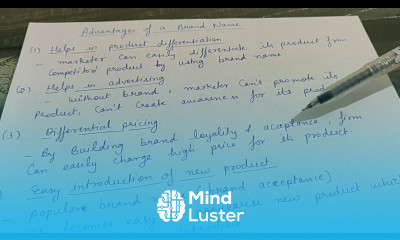 Advantages of a Brand Name
(1) Helps in product differentiation
- marketer can easily differentiate its product from
Competitors product by using brand name.
Helps in advertising
- Without brand, marketer can't promote its
Product, Can't Create awareness for its
(3) Differential pricing
- By Building brand loyalty & acceptance, firm
Can easily charge high price for its product
Easy introduction of new product
popular brand brand acceptance)
new product
becomes easy
Mind
Luster